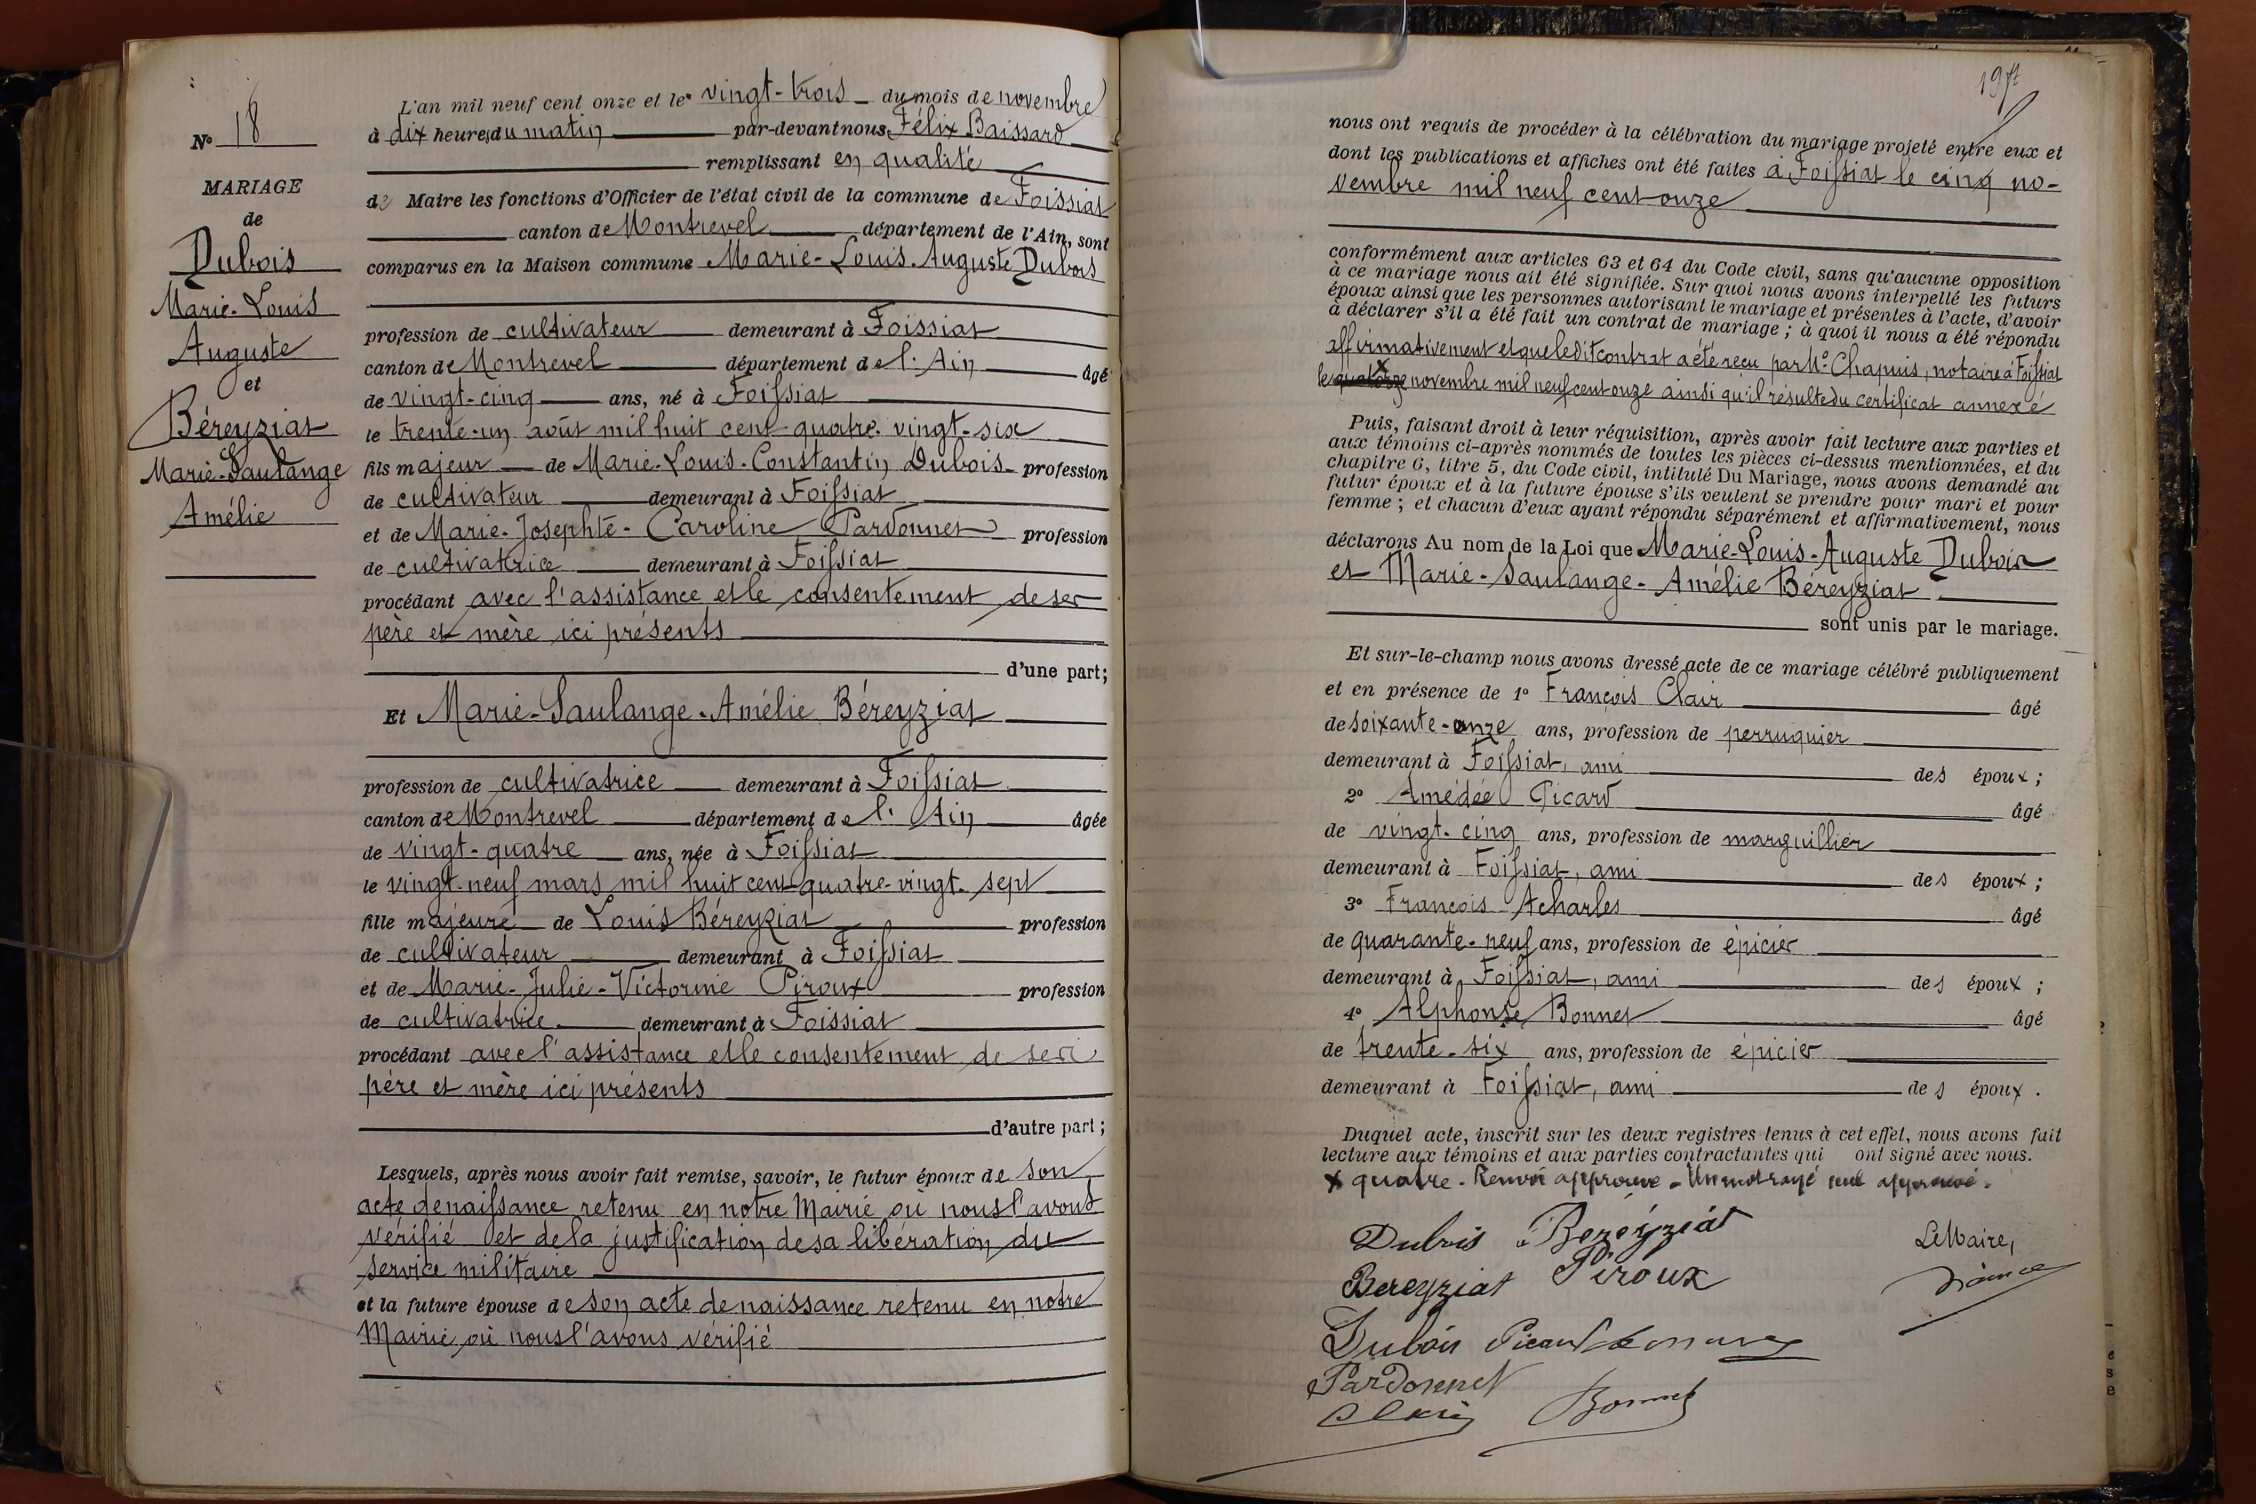 L'an mil neuf cent onze et le vingt-trois du mois de novembre
à dix heures du matin par-devant nous Félix Baissard
remplissant en qualité
de Maire les fonctions d'Officier de l'état civil de la commune de Foissiat
canton de Montrevel département de l'Ain, sont
comparus en la Maison commune Marie-Louis-Auguste Dubois
profession de cultivateur demeurant à Foissiat
canton de Montrevel département de l'Ain âgé
de vingt-cinq ans, né à Foissiat
le trente-un août mil huit cent quatre-vingt-six
fils majeur de Marie-Louis-Constantin Dubois profession
de cultivateur demeurant à Foissiat
et de Marie-Josephte-Caroline Pardonnet profession
de cultivatrice demeurant à Foissiat
procédant avec l'assistance et le consentement de ses
père et mère ici présents
d'une part;
Et Marie-Saulange-Amélie Béreyziat
profession de cultivatrice demeurant à Foissiat
canton de Montrevel département de l'Ain âgée
de vingt-quatre ans, née à Foissiat
le vingt-neuf mars mil huit cent quatre-vingt-sept
fille majeure de Louis Béreyziat profession
de cultivateur demeurant à Foissiat
et de Marie-Julie-Victorine Piroux profession
de cultivatrice demeurant à Foissiat
procédant avec l'assistance et le consentement de ses
père et mère ici présents
d'autre part;
Lesquels, après nous avoir fait remise, savoir, le futur époux de son
acte de naissance retenu en notre Mairie où nous l'avons
vérifié et de la justification de sa libération du
service militaire
et la future épouse de son acte de naissance retenu en notre
Mairie où nous l'avons vérifié
No 18
MARIAGE
de
Dubois
Marie-Louis
Auguste
et
Béreyziat
Marie-Saulange
Amélie
nous ont requis de procéder à la célébration du mariage projeté entre eux et
dont les publications et affiches ont été faites à Foissiat le cinq no-
vembre mil neuf cent onze
conformément aux articles 63 et 64 du Code civil, sans qu'aucune opposition
à ce mariage nous ait été signifiée. Sur quoi nous avons interpellé les futurs
époux ainsi que les personnes autorisant le mariage et présentes à l'acte, d'avoir
à déclarer s'il a été fait un contrat de mariage; à quoi il nous a été répondu
affirmativement et que ledit contrat a été reçu par Me Chapuis, notaire à Foissiat
le quatorze x novembre mil neuf cent onze ainsi qu'il résulte du certificat annexé
Puis, faisant droit à leur réquisition, après avoir fait lecture aux parties et
aux témoins ci-après nommés de toutes les pièces ci-dessus mentionnées, et du
chapitre 6, titre 5, du Code civil, intitulé Du Mariage, nous avons demandé au
futur époux et à la future épouse s'ils veulent se prendre pour mari et pour
femme; et chacun d'eux ayant répondu séparément et affirmativement, nous
déclarons Au nom de la Loi que Marie-Louis-Auguste Dubois
et Marie-Saulange-Amélie Béreyziat
sont unis par le mariage.
Et sur-le-champ nous avons dressé acte de ce mariage célébré publiquement
et en présence de 1o François Clair âgé
de soixante-onze ans, profession de perruquier
demeurant à Foissiat, ami des époux;
2o Amédée Picard âgé
de vingt-cinq ans, profession de marguillier
demeurant à Foissiat, ami des époux;
3o François Acharles âgé
de quarante-neuf ans, profession de épicier
demeurant à Foissiat, ami des époux;
4o Alphonse Bonnet âgé
de trente-six ans, profession de épicier
demeurant à Foissiat, ami des époux.
Duquel acte, inscrit sur les deux registres tenus à cet effet, nous avons fait
lecture aux témoins et aux parties contractantes qui ont signé avec nous.
x quatre. Renvoi approuvé - Un mot rayé nul approuvé.
Dubois Bereyziat
Le Maire,
Bereyziat Piroux
Dubois Picard
Pardonnet
Bonnet